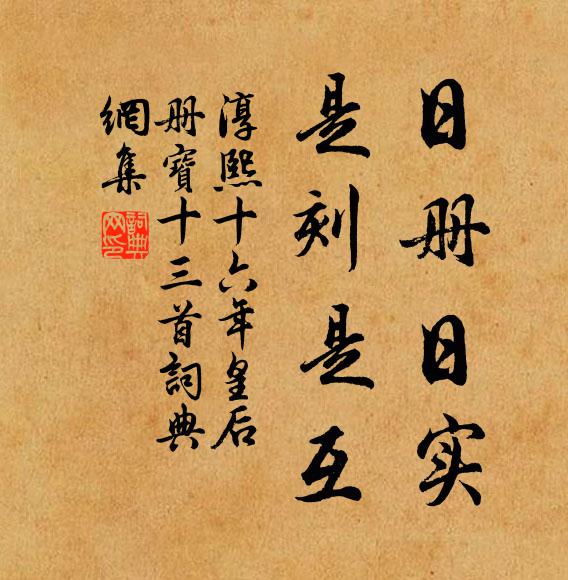 日册日实
是刻是互
淳熙十六年皇后
册寶十三首詞典
網集
詞典网印